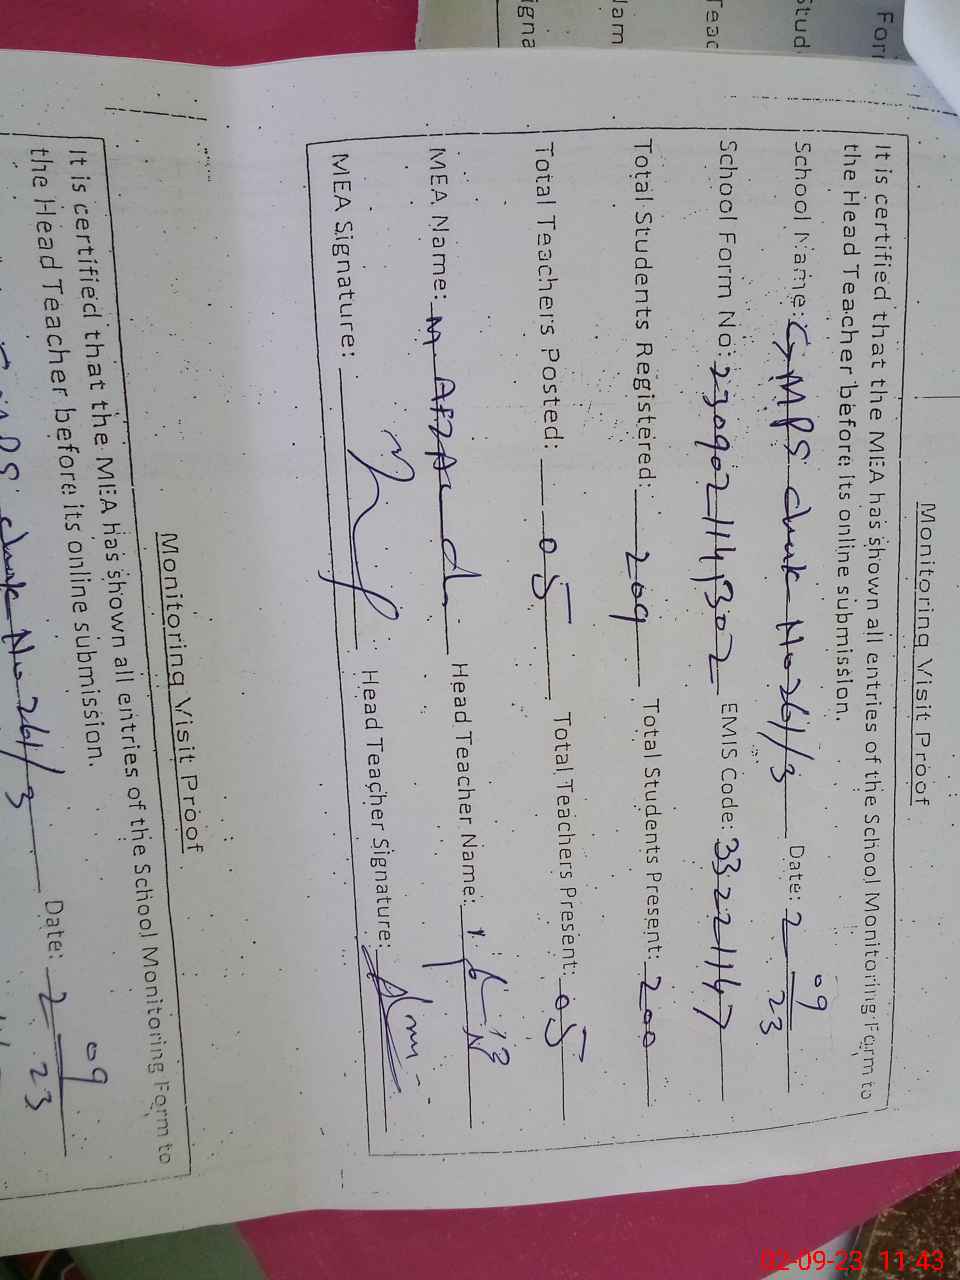 Monitoring Visit Proof
It is certified that the MEA has shown all entries of the School Monitoring Form to
the Head Teacher before its online submission.
School Name: GMPS chak No 261/3 Date: 2 09 23
School Form No: 2309021141302 EMIS Code: 33221147
Total Students Registered: 209 Total Students Present: 200
Total Teachers Posted: 05 Total Teachers Present: 05
MEA Name: M AFZAL Head Teacher Name:
MEA Signature: Head Teacher Signature:
Monitoring Visit Proof
It is certified that the MEA has shown all entries of the School Monitoring Form to
the Head Teacher before its online submission.
GMPS chak No 261/3 Date: 2 09 23
02-09-23 11:43